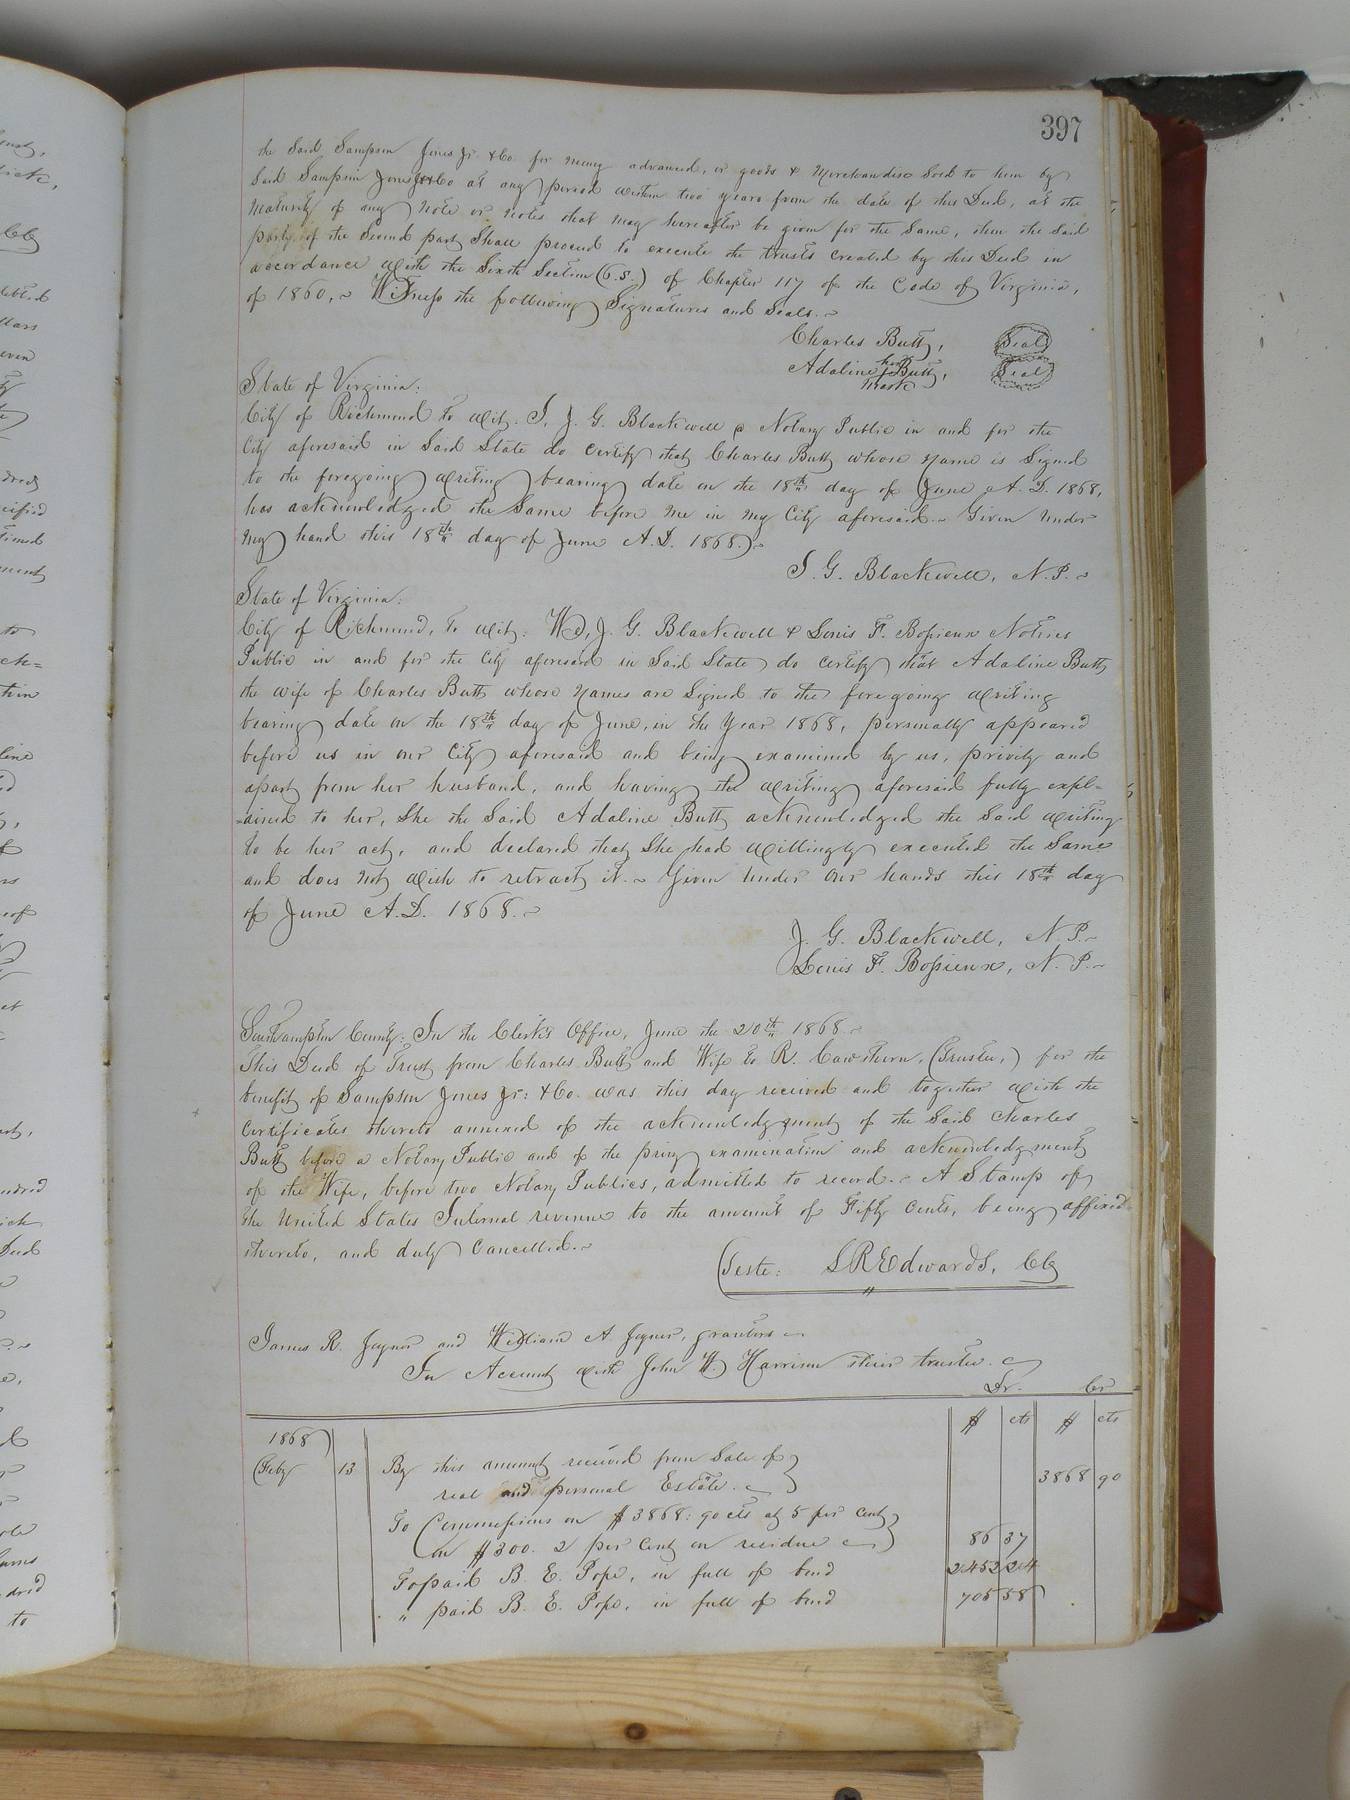 397
the Said Sampson Jones Jr. & Co. for money advanced, or goods & Merchandise Sold to them by
Said Sampson Jones Jr & Co at any period within two years from the date of this Deed, at the
maturity of any Note or notes that may hereafter be given for the Same, then the said
party of the Second part Shall proceed to execute the trusts created by this Deed in
accordance with the Sixth Section (6. S.) of Chapter 117 of the Code of Virginia,
of 1860,~ Witness the following Signatures and Seals.~
Charles Butts, Seal
her
Adaline + Butts, Seal
mark
State of Virginia:
City of Richmond to wit. I, J. G. Blackwell a Notary Public in and for the
City aforesaid in Said State do certify that Charles Butts whose name is Signed
to the foregoing writing bearing date on the 18th day of June A. D. 1868,
has acknowledged the Same before me in my City aforesaid.~ Given under
my hand this 18th day of June A.D. 1868.~
J. G. Blackwell, N. P.~
State of Virginia:
City of Richmond, to wit: We, J. G. Blackwell & Louis F. Bossieux Notries
Public in and for the City aforesaid in Said State do certify that Adaline Butts
the wife of Charles Butts whose names are Signed to the foregoing writing
bearing date on the 18th day of June, in the Year 1868, personally appeared
before us in our City aforesaid and being examined by us, privily and
apart from her husband, and having the writing aforesaid fully expl-
-ained to her, She the Said Adaline Butts acknowledged the said writing
to be her act, and declared that She had willingly executed the Same
and does not wish to retract it.~ Given under our hands this 18th day
of June A.D. 1868.~
J. G. Blackwell, N. P.~
Louis F. Bossieux, N. P.~
Southampton County: In the Clerk's Office, June the 20th 1868.~
This Deed of Trust from Charles Butts and Wife to R. Cawthorn, (Trustee,) for the
benefit of Sampson Jones Jr: & Co. was this day received and together with the
Certificates thereto annexed of the acknowledgment of the Said Charles
Butts before a Notary Public and of the privy examination and acknowledgment
of the Wife, before two Notary Publics, admitted to record.~ A Stamp of
the United States Internal revenue to the amount of Fifty Cents, being affixed
thereto, and duly Cancelled.~
Teste: L R Edwards, Clk
James R. Joyner and William A Joyner, grantors
In Account with John W. Harrison their trustee.
Dr. Cr
$ cts $ cts
1868
Feby 13 By this amount received from Sale of
real and personal Estate. 3868 90
To Commissions on $3868: 90 cts at 5 per cent
on $300. 2 per cent on residue 86 37
To paid B. E. Pope, in full of bond 2452 24
" paid B. E. Pope, in full of bond 705 58